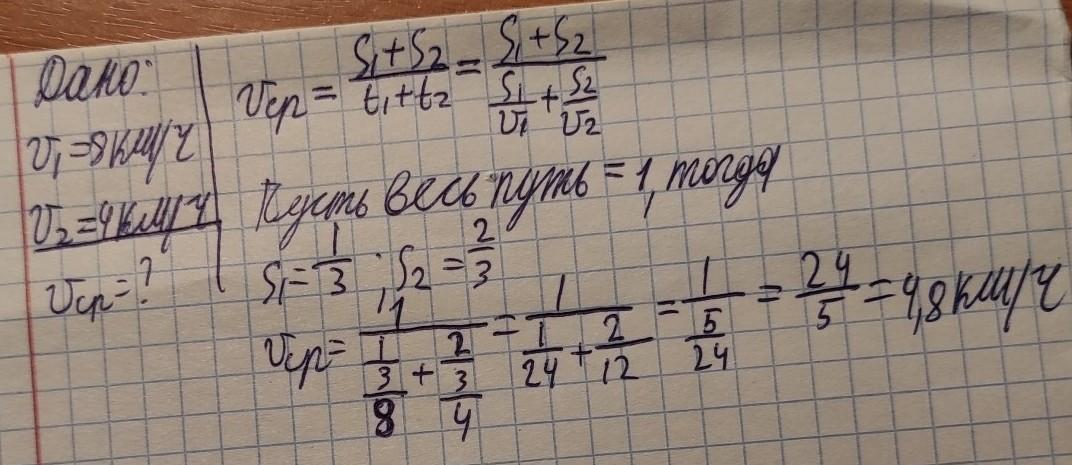 Дано:
v₁=8км/ч
v₂=4км/ч
vср=?
vср = (S₁+S₂)/(t₁+t₂) = (S₁+S₂)/(S₁/v₁ + S₂/v₂)
Пусть весь путь = 1, тогда
S₁ = 1/3 ; S₂ = 2/3
vср = 1/((1/3)/8 + (2/3)/4) = 1/(1/24 + 2/12) = 1/(5/24) = 24/5 = 4,8км/ч